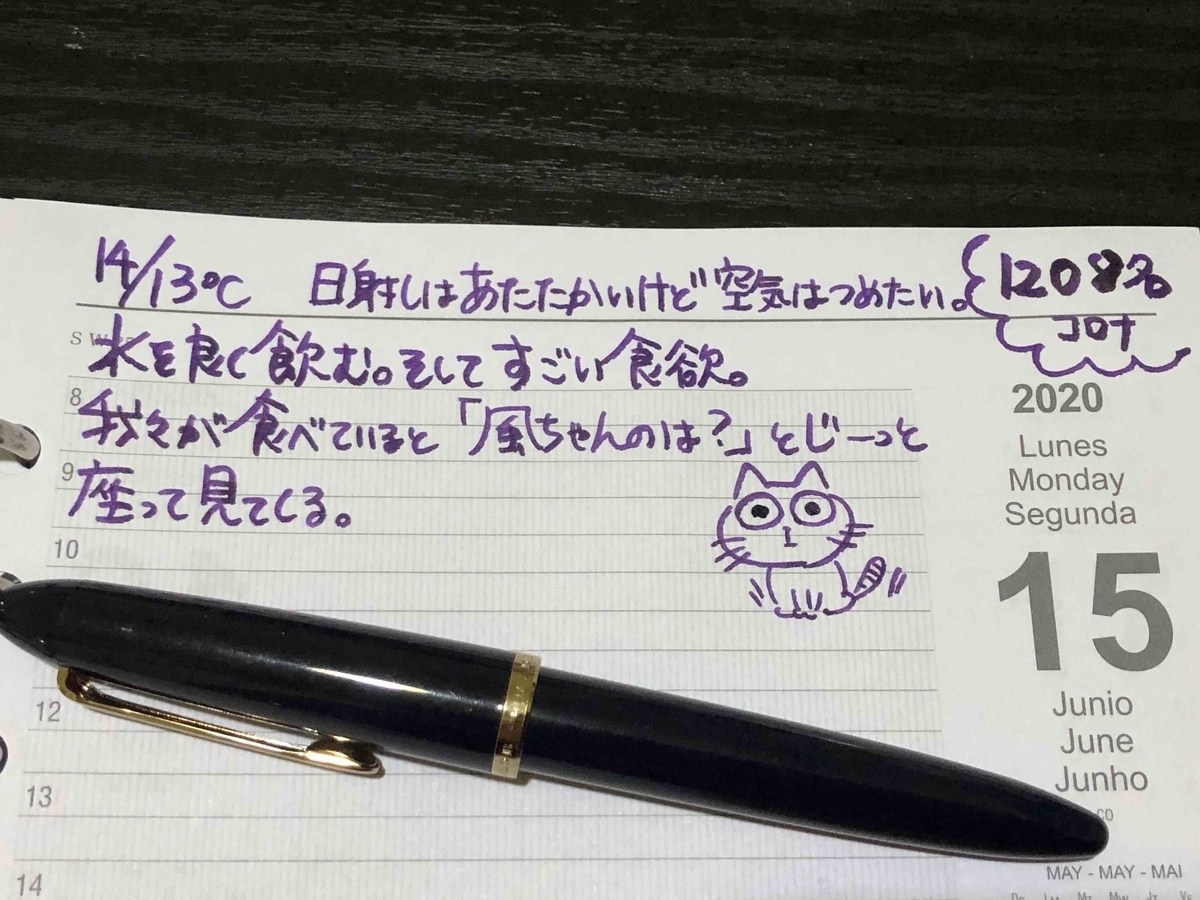 14/13℃ 日射しはあたたかいけど空気はつめたい。
1208名
コロナ
水を良く飲む。そしてすごい食欲。
我々が食べていると「風ちゃんのは?」とじーっと
座って見てくる。
S W
8
9
10
12
13
14
2020
Lunes
Monday
Segunda
15
Junio
June
Junho
CO
MAY - MAY - MAI